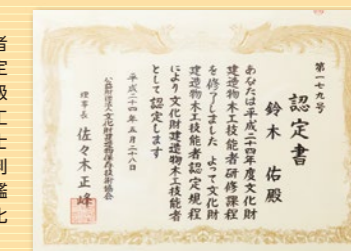 第一七九号
認定書
鈴木 佑殿
あなたは平成二十四年度文化財
建造物木工技能者研修課程
を修了しました よって文化財
建造物木工技能者認定規程
により文化財建造物木工技能者
として認定します
平成二十四年五月二十八日
公益財団法人文化財建造物保存技術協会
理事長 佐々木正峰
者
定
級
工
士
別
鑑
化